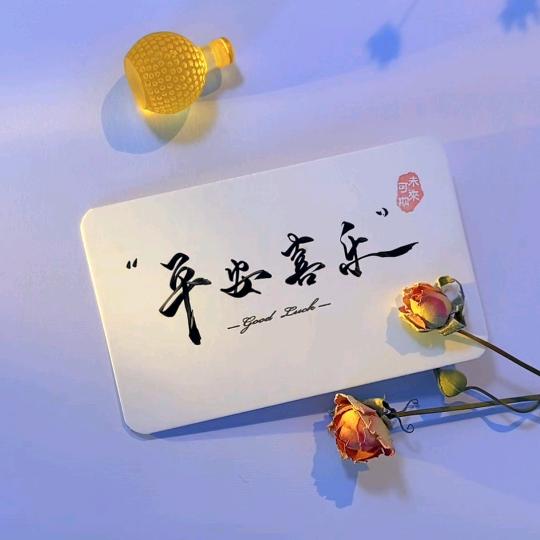 “平安喜乐”
—Good Luck—
未来
可期